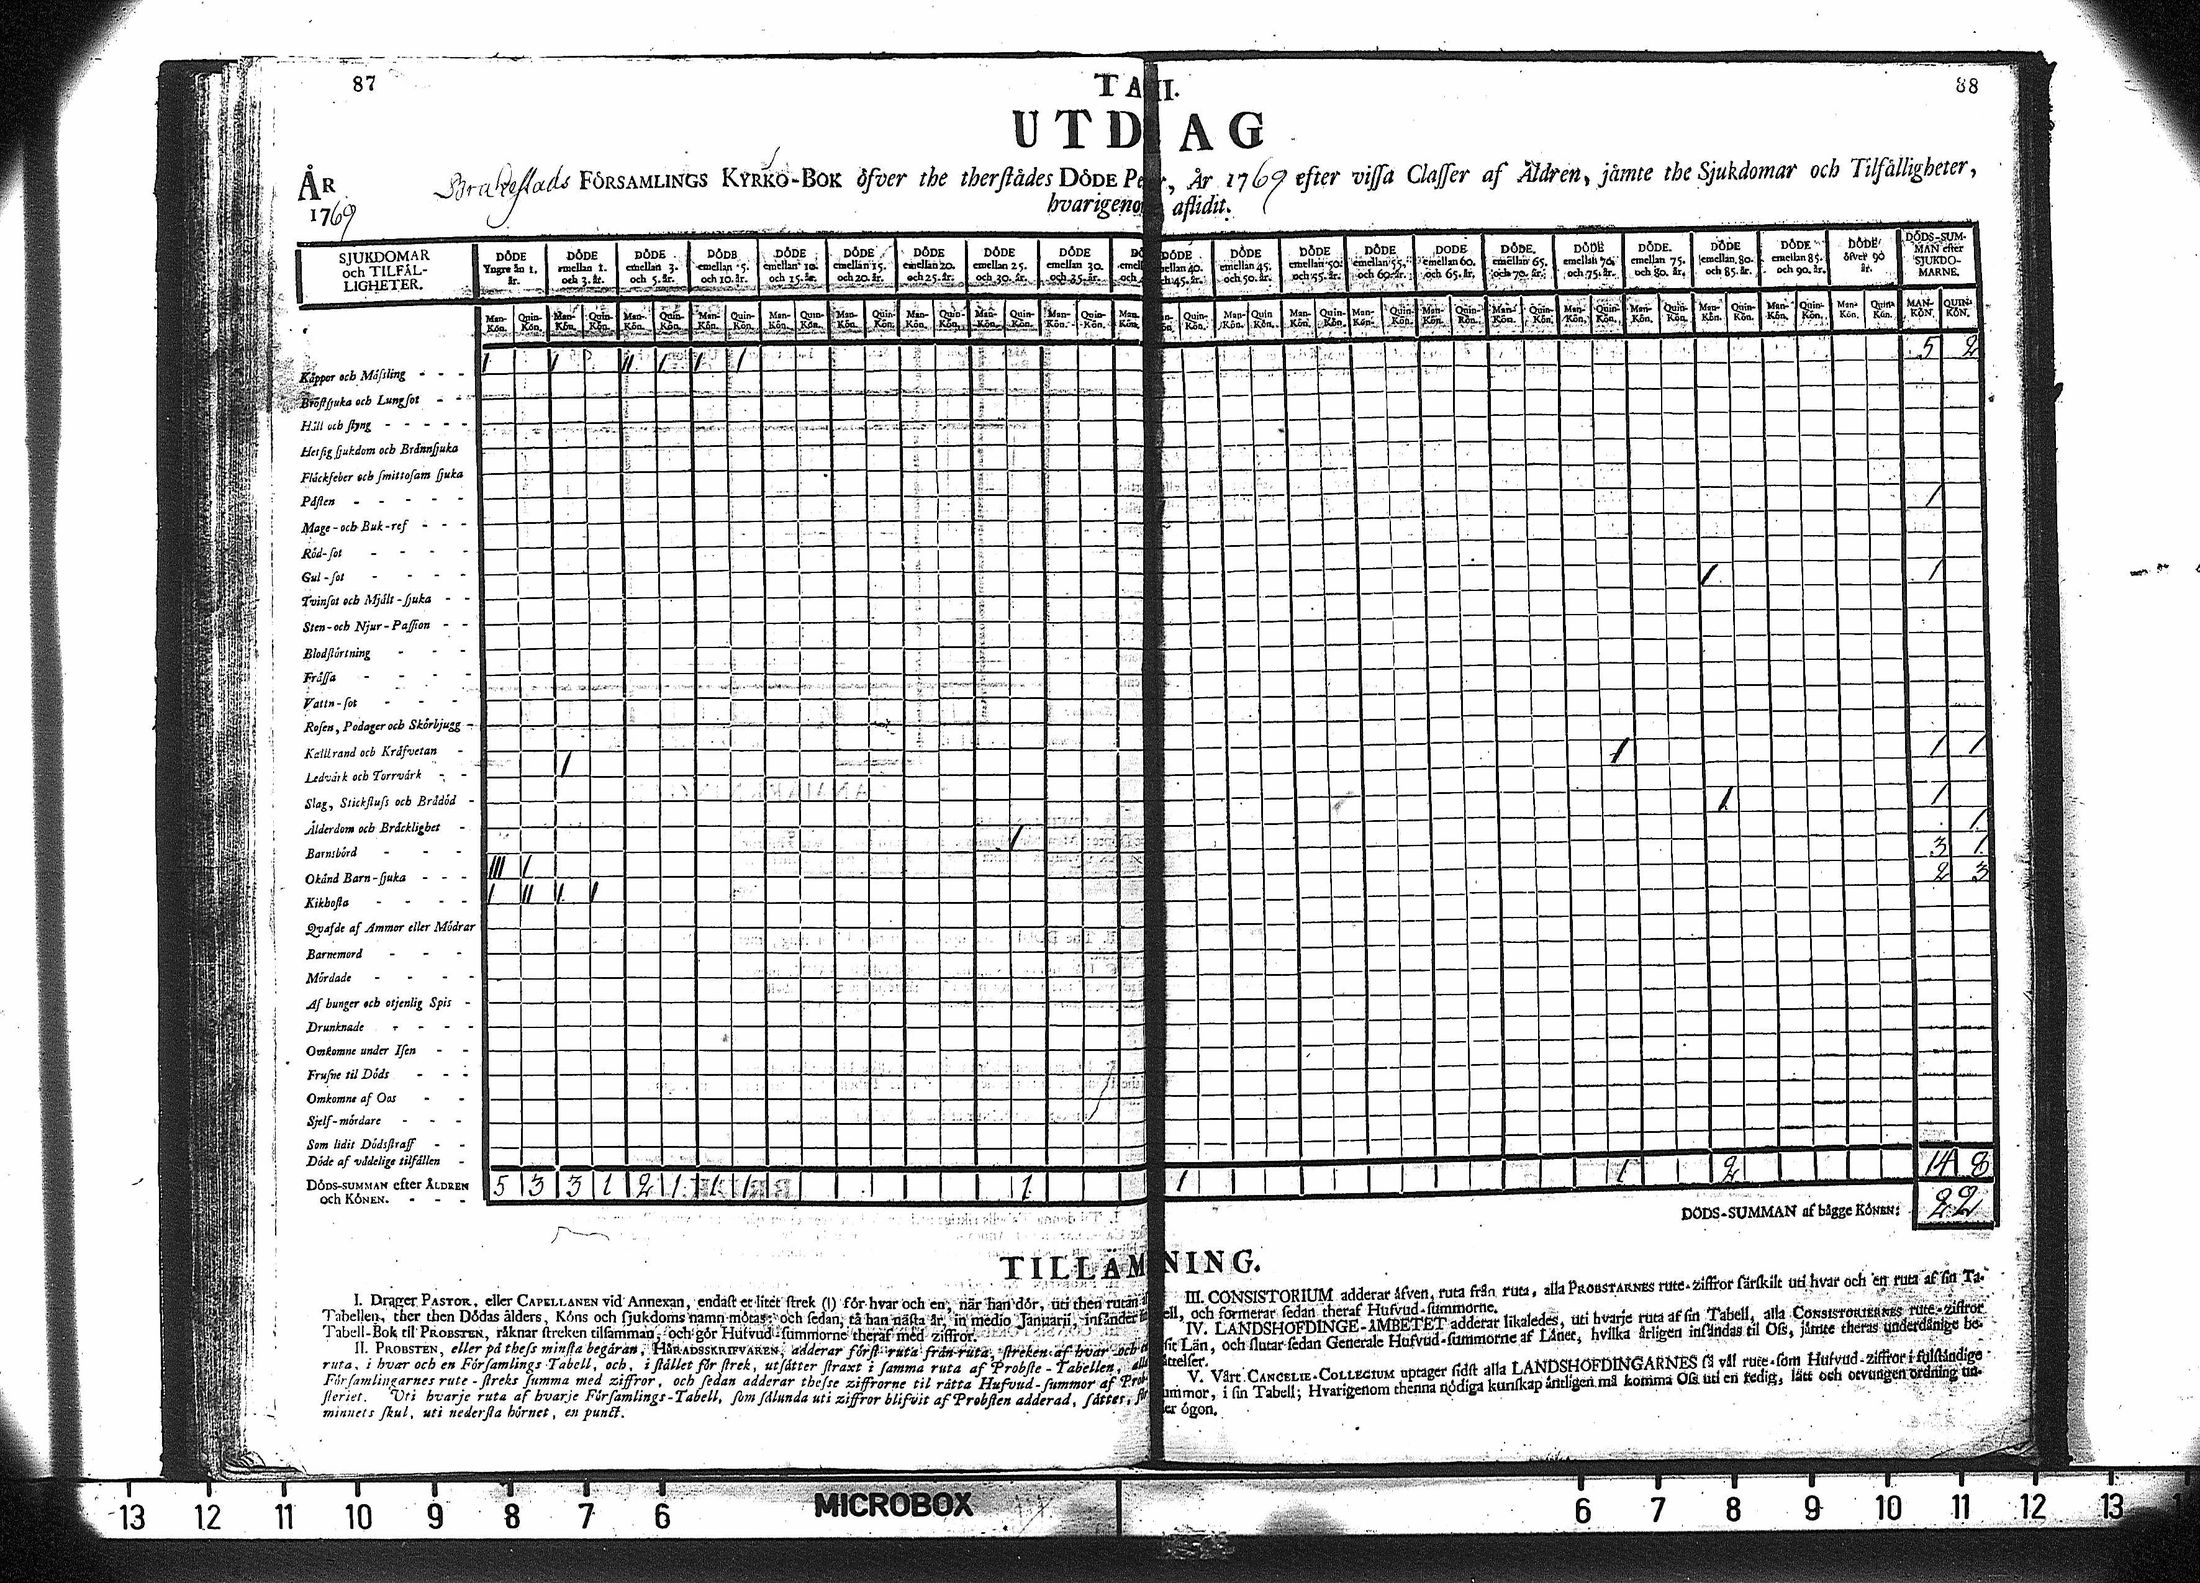 87
TA II.
88
UTD AG
ÅR 1769
Brahestads FÖRSAMLINGS KYRKO-BOK öfver the therstädes DÖDE Pe r, År 1769 efter vissa Classer af Åldren, jämte the Sjukdomar och Tilfälligheter,
hvarigeno aflidit.
SJUKDOMAR och TILFÄL-LIGHETER.
DÖDE Yngre än 1. år.
DÖDE emellan 1. och 3. år.
DÖDE emellan 3. och 5. år.
DÖDE emellan 5. och 10. år.
DÖDE emellan 10. och 15. år.
DÖDE emellan 15. och 20. år.
DÖDE emellan 20. och 25. år.
DÖDE emellan 25. och 30. år.
DÖDE emellan 30. och 35. år.
DÖDE emellan 40. och 45. år.
DÖDE emellan 45. och 50. år.
DÖDE emellan 50. och 55. år.
DÖDE emellan 55. och 60. år.
DÖDE emellan 60. och 65. år.
DÖDE emellan 65. och 70. år.
DÖDE emellan 70. och 75. år.
DÖDE emellan 75. och 80. år.
DÖDE emellan 80. och 85. år.
DÖDE emellan 85. och 90. år.
DÖDE öfver 90 år.
DÖDS-SUM-MAN efter SJUKDO-MARNE.
Man-Kön. Quin-Kön. Man-Kön. Quin-Kön. Man-Kön. Quin-Kön. Man-Kön. Quin-Kön. Man-Kön. Quin-Kön. Man-Kön. Quin-Kön. Man-Kön. Quin-Kön. Man-Kön. Quin-Kön. Man-Kön. Quin-Kön. Man-Kön. Quin-Kön. Man-Kön. Quin-Kön. Man-Kön. Quin-Kön. Man-Kön. Quin-Kön. Man-Kön. Quin-Kön. Man-Kön. Quin-Kön. Man-Kön. Quin-Kön. Man-Kön. Quin-Kön. Man-Kön. Quin-Kön. Man-Kön. Quin-Kön. Man-Kön. Quin-Kön. MAN-KÖN. QUIN-KÖN.
Kåppor och Mäßling - - - / / // / / / 5 2
Bröstsjuka och Lungsot - -
Håll och styng - - - - -
Hetsig sjukdom och Brännsjuka
Fläckfeber och smittosam sjuka
Pästen - - - - - 1
Mage-och Buk-ref - - -
Röd-sot - - - -
Gul-sot - - - - / 1
Tvinsot och Mjält-sjuka - -
Sten-och Njur-Passion - -
Blodstörtning - - -
Fråssa - - - -
Vattn-sot - - -
Rosen, Podager och Skörbjugg -
Kallbrand och Kräfvetan - / 1 1
Ledvärk och Torrvärk - - /
Slag, Stickfluss och Brådöd - 1 1
Ålderdom och Bräcklighet - / 1
Barnsbörd - - - 3 1
Okänd Barn-sjuka - - - /// / 2 3
Kikhosta - - - - / // / /
Qvafde af Ammor eller Mödrar
Barnemord - - -
Mördade - - - -
Af hunger och otjenlig Spis -
Drunknade - - - -
Omkomne under Isen - -
Frusne til Döds - - -
Omkomne af Oos - -
Sjelf-mördare - - -
Som lidit Dödsstraff - -
Döde af vådelige tilfällen -
DÖDS-SUMMAN efter ÅLDREN och KÖNEN. - - - 5 3 3 1 2 1 1 1 1 1 1 2 14 8
DÖDS-SUMMAN af bägge KÖNEN: 22
TILLÄM NING.
I. Drager PASTOR, eller CAPELLANEN vid Annexan, endast et litet strek (l) för hvar och en, när han dör, uti then rutan
Tabellen, ther then Dödas ålders, Köns och sjukdoms namn mötas; och sedan, tå han nästa år, in medio Januarii, insänder
Tabell-Bok til PROBSTEN, räknar streken tilsamman, och gör Hufvud-summorne theraf med ziffror.
II. PROBSTEN, eller på theß minsta begäran, HÄRADSSKRIFVAREN, adderar först ruta från ruta, streken af hvar och
ruta, i hvar och en Församlings Tabell, och, i stället för strek, utsätter straxt i samma ruta af Probste-Tabellen, alla
Församlingarnes rute-streks summa med ziffror, och sedan adderar theße ziffrorne til rätta Hufvud-summor af Prob
steriet. Uti hvarje ruta af hvarje Församlings-Tabell, som sålunda uti ziffror blifvit af Probsten adderad, sättes, för
minnets skul, uti nedersta hörnet, en punct.
III. CONSISTORIUM adderar äfven, ruta från ruta, alla PROBSTARNES rute-ziffror särskilt uti hvar och en ruta af sin Ta-
ell, och formerar sedan theraf Hufvud-summorne.
IV. LANDSHÖFDINGE-ÄMBETET adderar likaledes, uti hvarje ruta af sin Tabell, alla CONSISTORIERNES rute-ziffror
sit Län, och slutar sedan Generale Hufvud-summorne af Länet, hvilka årligen insändas til Oß, jämte theras underdånige be-
ättelser.
V. Vårt CANCELIE-COLLEGIUM uptager sidst alla LANDSHÖFDINGARNES så väl rute-som Hufvud-ziffror i fulständige
summor, i sin Tabell; Hvarigenom thenna nödiga kunskap äntligen må komma Oß uti en redig, lätt och otvungen ordning un-
er ögon.
13 12 11 10 9 8 7 6 MICROBOX 6 7 8 9 10 11 12 13